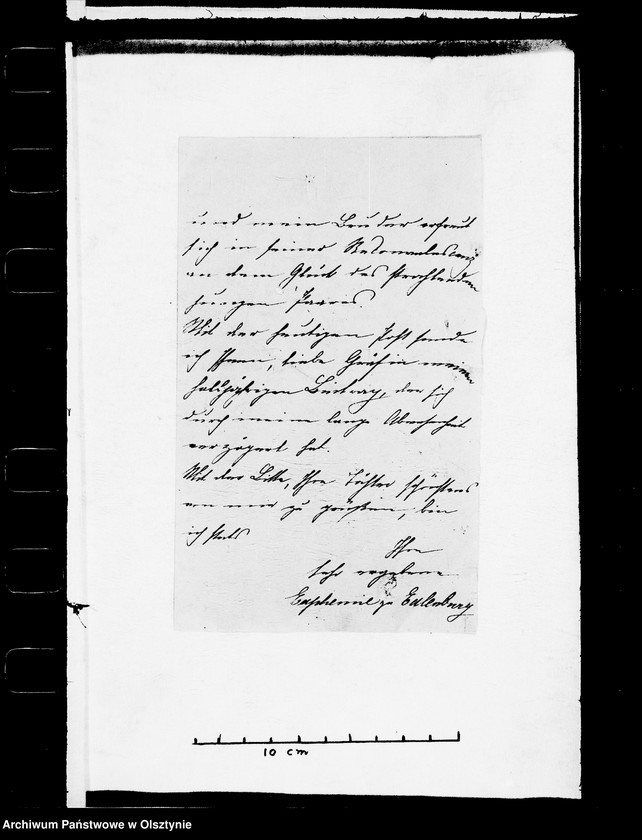 und mein Bruder erfreut
sich in seiner Reconvalescenz
an dem Glück des strahlenden
jungen Paares.
Mit der heutigen Post sende
ich Ihnen, liebe Gräfin meinen
halbjährigen Beitrag, der sich
durch meine lange Abwesenheit
verzögert hat.
Mit der Bitte, Ihre Töchter schönstens
von mir zu grüßen, bin
ich stets
Ihre
sehr ergebene
Euphemie zu Eulenburg
10 cm
Archiwum Państwowe w Olsztynie